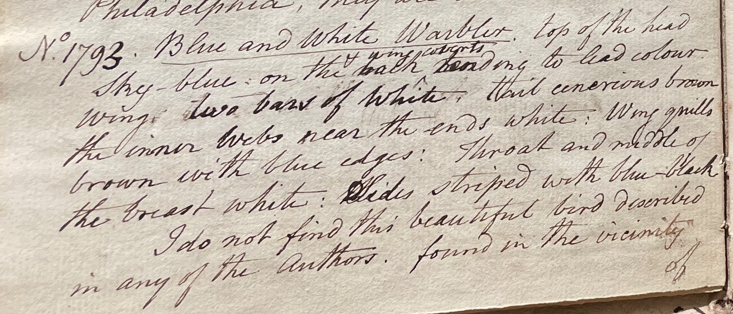 Philadelphia, may
No. 1793. Blue and White Warbler. top of the head
sky-blue: on the back & wing coverts tending to lead colour
wing. two bars of White. Tail cenerious brown
the inner webs near the ends white: Wing quills
brown with blue edges: Throat and middle of
the breast white: Sides striped with blue-black
I do not find this beautiful bird described
in any of the Authors. found in the vicinity
of